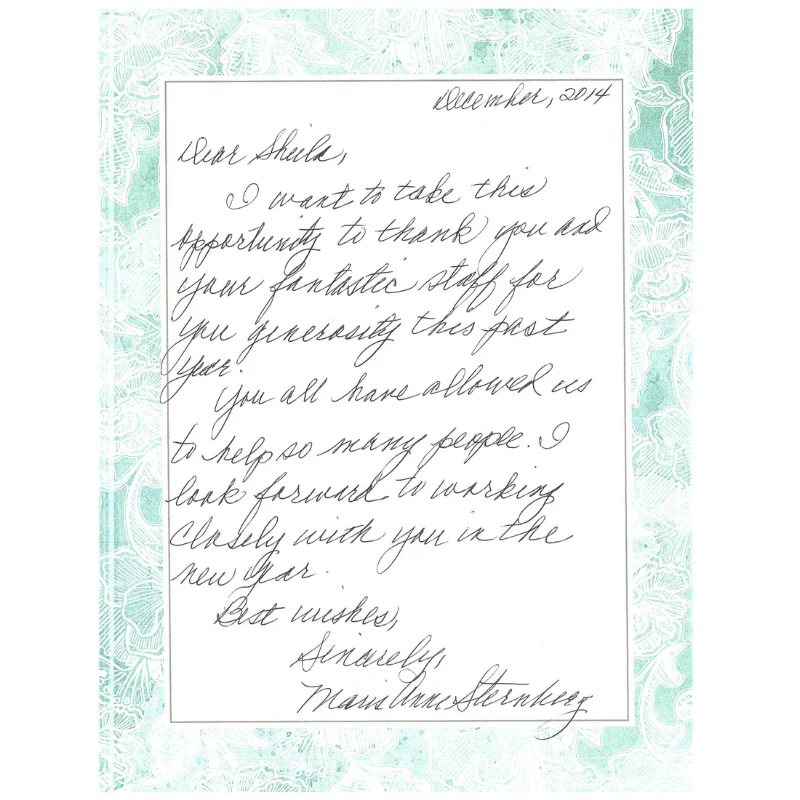 December, 2014
Dear Sheila,
I want to take this
opportunity to thank you and
your fantastic staff for
you generosity this past
year.
You all have allowed us
to help so many people. I
look forward to working
closely with you in the
new year.
Best wishes,
Sincerely,
Maris Anne Sternberg